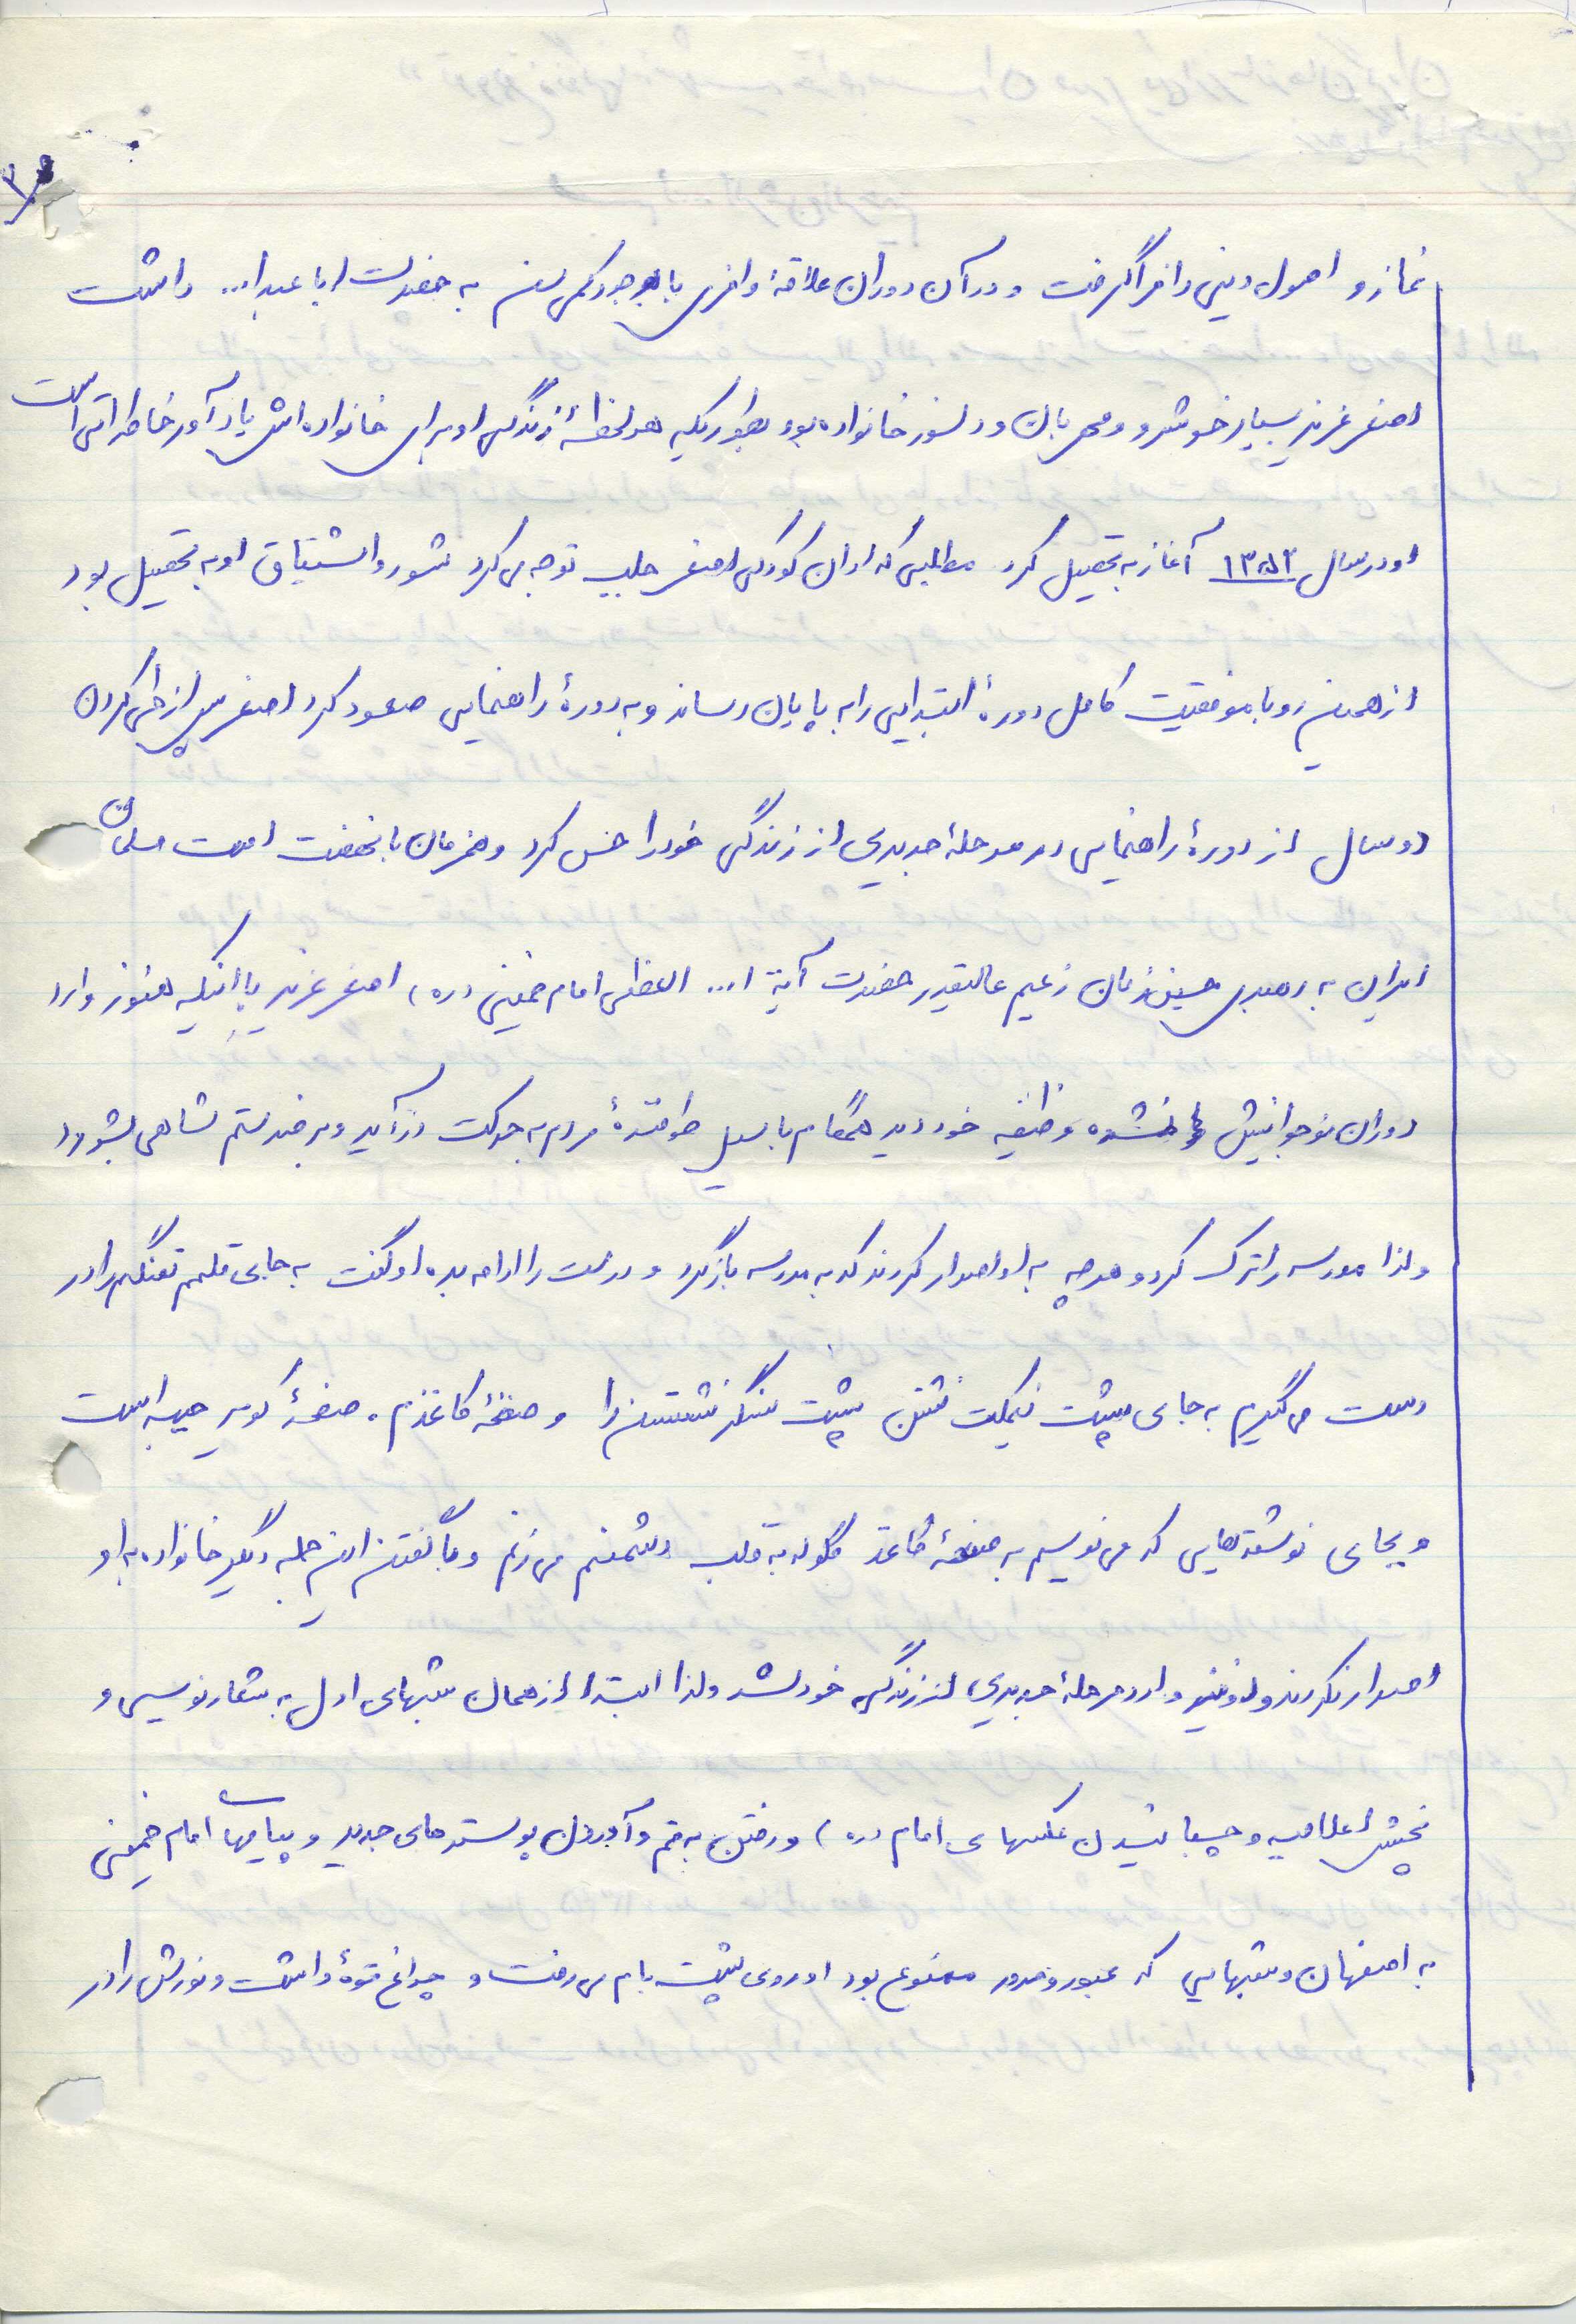 نماز و اصول دینی را فرا گرفت و در آن دوران علاقهٔ وافری با وجود کمی سن به حضرت ابا عبدا... داشت
اصغر عزیز بسیار خوشرو و مهربان و دلسوز خانواده بود بطوریکه هر لحظهٔ زندگی او برای خانواده اش یادآور خاطراتی است
او در سال ۱۳۵۲ آغاز به تحصیل کرد مطلبی که از آن کودکی اصغر جلب توجه می کرد شور و اشتیاق او به تحصیل بود
از همین رو با موفقیت کامل دورهٔ ابتدایی را به پایان رساند و به دورهٔ راهنمایی صعود کرد اصغر پس از طی کردن
دو سال از دورهٔ راهنمایی در مرحلهٔ جدیدی از زندگی خود را حس کرد و همزمان با نهضت امت مسلمان
ایران به رهبری حسین زمان زعیم عالیقدر حضرت آیة ا... العظمی امام خمینی (ره) اصغر عزیز با اینکه هنوز وارد
دوران نوجوانیش نشده وظیفه خود دید همگام با سیل طوفندهٔ مردم به حرکت در آید و بر ضد ستم شاهی بشورد
ولذا مدرسه را ترک کرد و هر چه به او اصرار کردند که به مدرسه بازگرد و درست را ادامه بده او گفت به جای قلمم تفنگم را در
دست می گیرم به جای پشت نیمکت نشتن پشت سنگر نشستن را و صفحهٔ کاغذم، صفحهٔ کویر جبهه است
و بجای نوشته هایی که می نویسم به صفحهٔ کاغذ گلوله به قلب دشمنم می زنم و با گفتن این جمله دیگر خانواده به او
اصرار نکردند و او نیز وارد مرحلهٔ جدیدی از زندگی خود شد ولذا ابتدا از همان شبهای اول به شعار نویسی و
پخش اعلامیه و چسبانیدن عکسهای امام (ره) و رفتن به قم و آوردن پوسترهای جدید و پیامهای امام خمینی
به اصفهان و شبهایی که عبور و مرور ممنوع بود او روی پشت بام می رفت و چراغ قوهٔ داشت و نورش را در